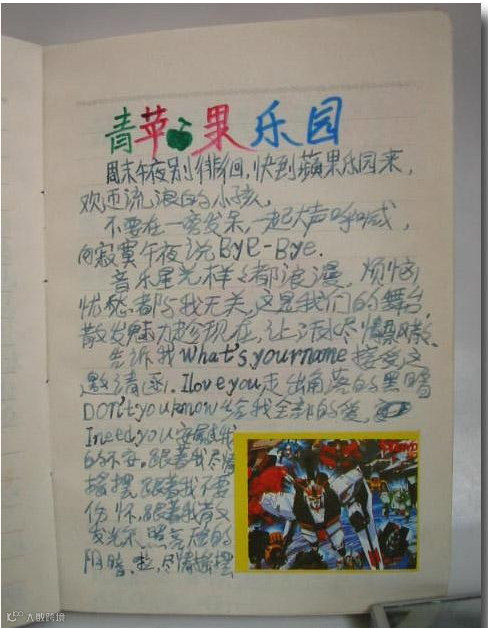 青苹果乐园
周末午夜别徘徊,快到蘋果乐园来,
欢迎流浪的小孩,
不要在一旁发呆,一起大声呼喊,
向寂寞午夜说Bye-Bye.
音乐星光样々都浪漫,烦恼
忧愁都与我无关,这是我们的舞台,
散发魅力趁现在,让汗水尽情飘散.
告诉我what's yourname接受这
邀请函,Iloveyou走出角落的黑暗
DON'tyouknow给我全部的爱,
Ineedyou安慰我
的不安,跟着我尽情
摇摆,跟着我不要
伤怀,跟着我有又
发光 照亮
阴暗,啦,尽情摇摆
人敏跨境